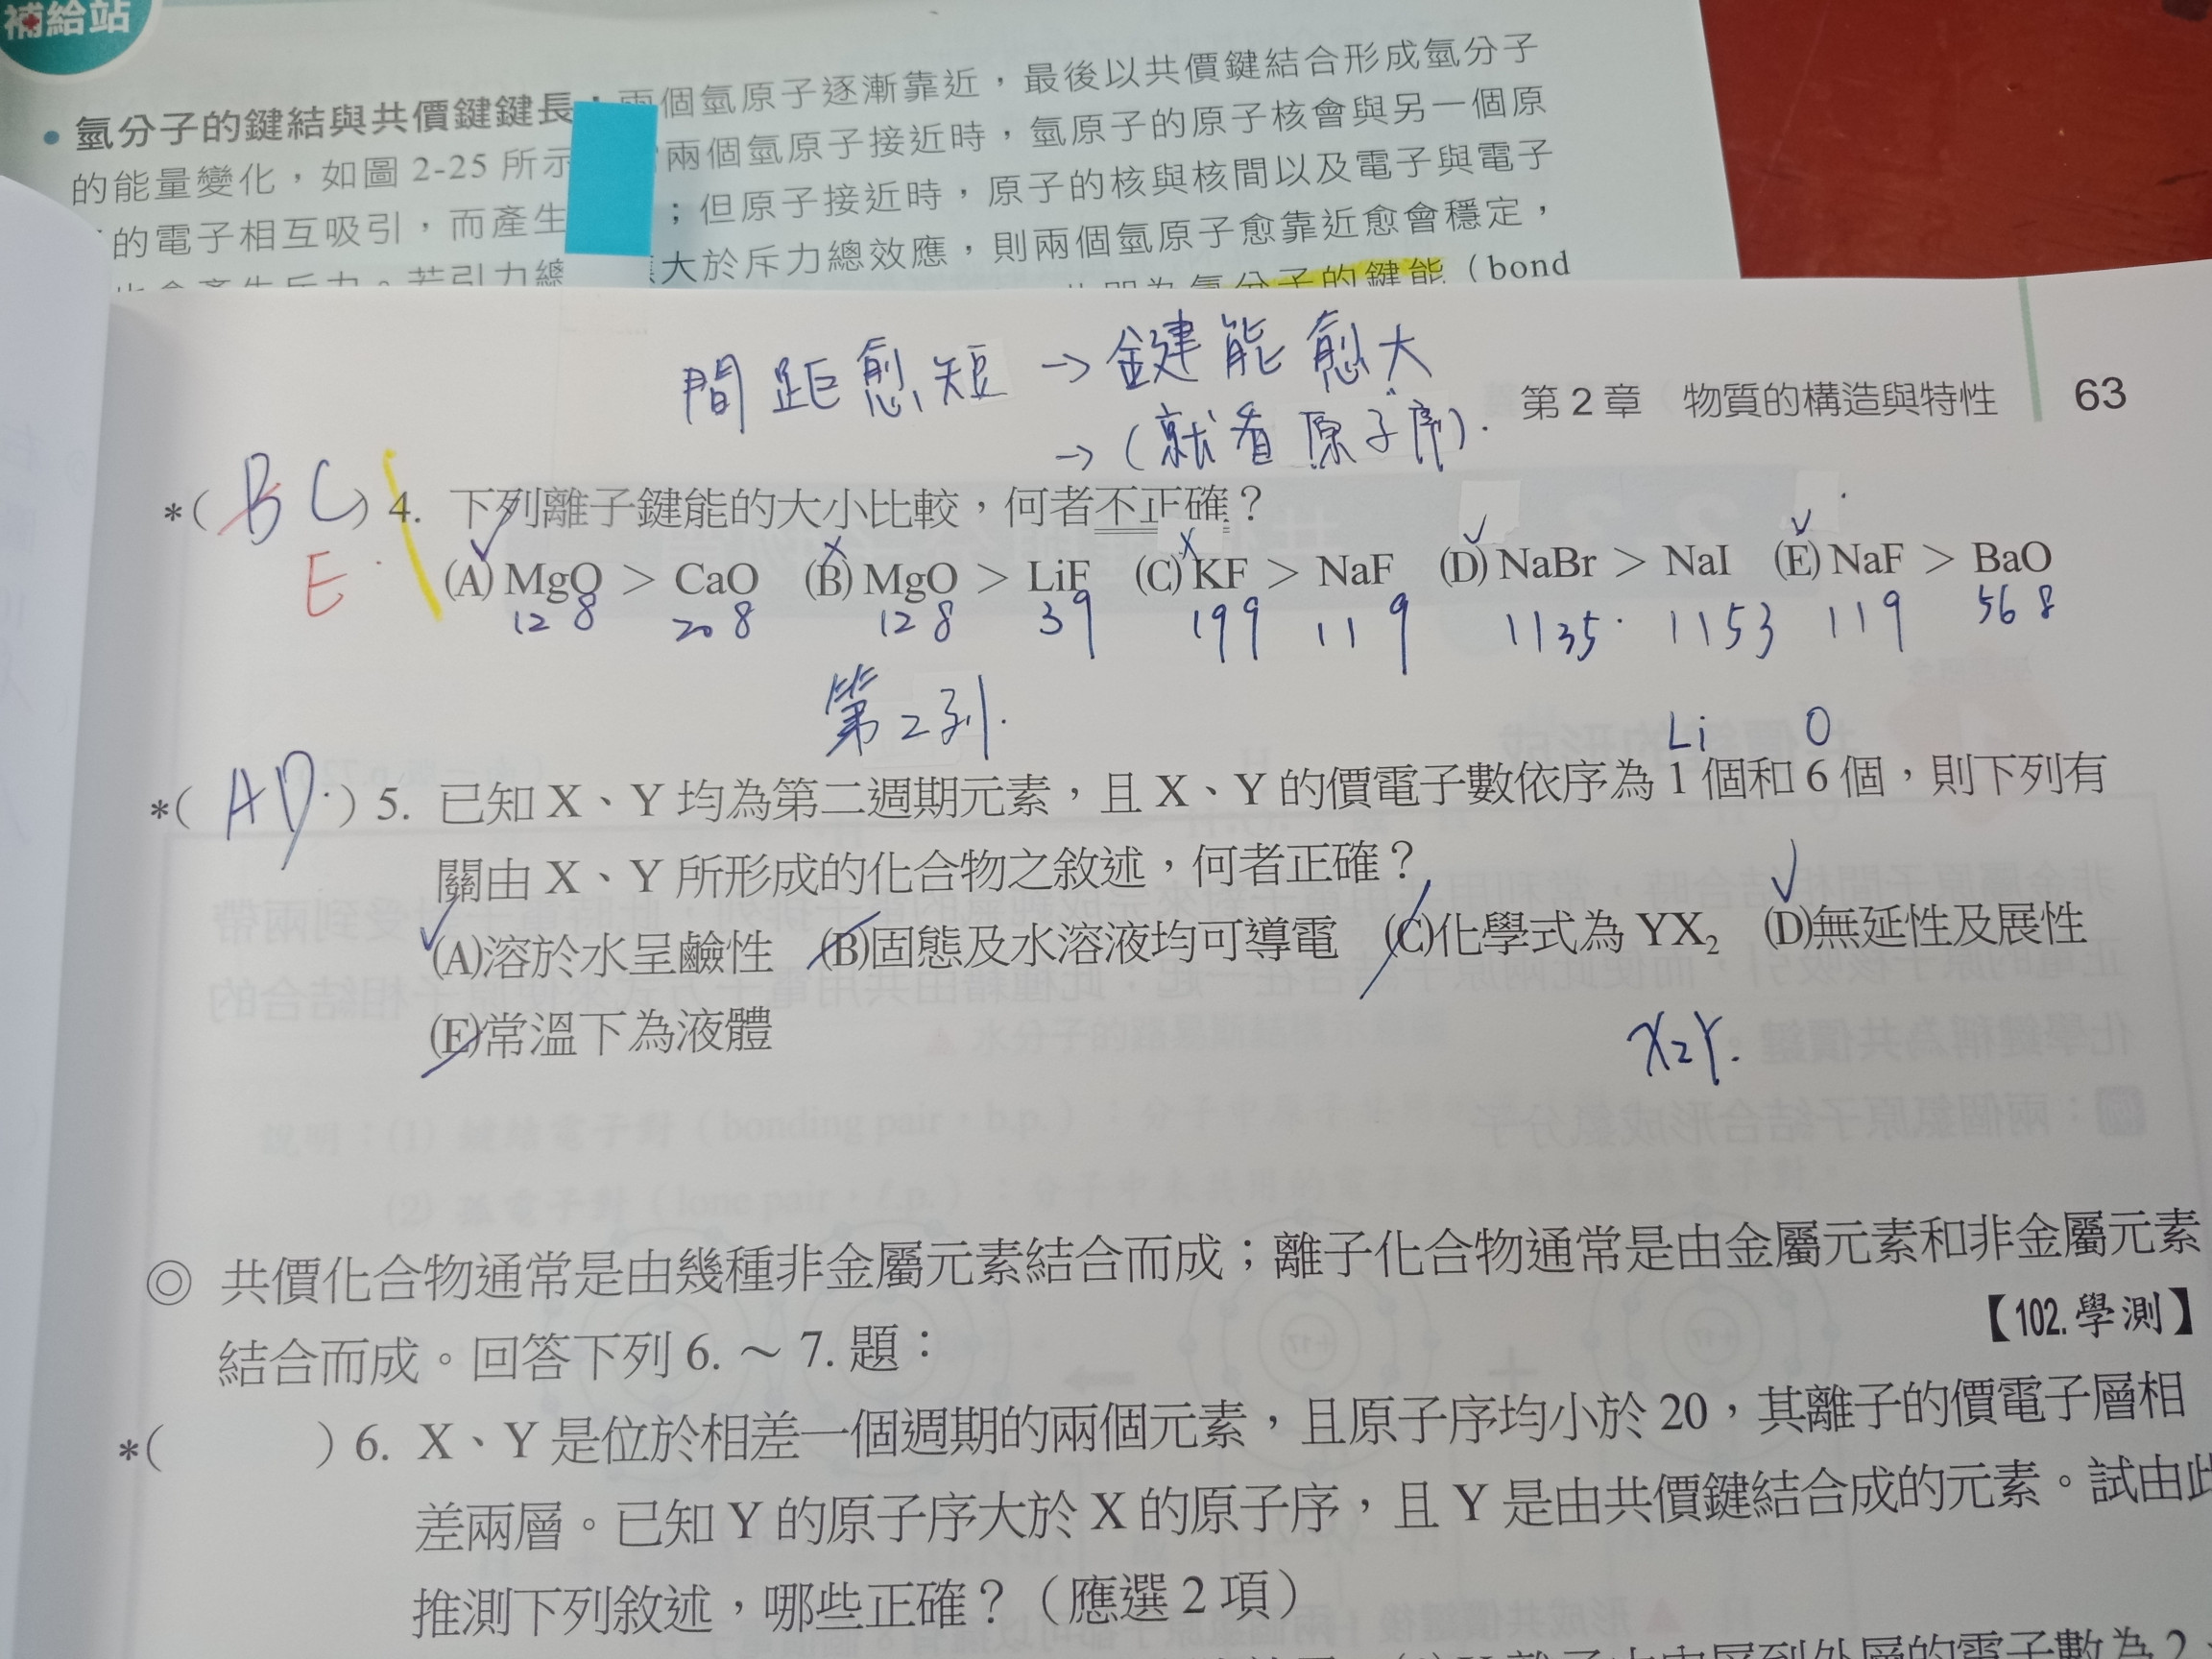 補給站
• 氫分子的鍵結與共價鍵鍵長：兩個氫原子逐漸靠近，最後以共價鍵結合形成氫分子
的能量變化，如圖 2-25 所示 兩個氫原子接近時，氫原子的原子核會與另一個原
的電子相互吸引，而產生 ；但原子接近時，原子的核與核間以及電子與電子
也會產生斥力。若引力總 應大於斥力總效應，則兩個氫原子愈靠近愈會穩定，
氫分子的鍵能（bond
間距愈短 → 鍵能愈大
→（就看原子序）.
第 2 章 物質的構造與特性 63
*( B C ) 4. 下列離子鍵能的大小比較，何者不正確？
E
(A) MgO > CaO (B) MgO > LiF (C) KF > NaF (D) NaBr > NaI (E) NaF > BaO
12 8 20 8 12 8 3 9 19 9 11 9 11 35 11 53 11 9 56 8
第2列.
Li O
*( AD. ) 5. 已知 X、Y 均為第二週期元素，且 X、Y 的價電子數依序為 1 個和 6 個，則下列有
關由 X、Y 所形成的化合物之敘述，何者正確？
(A)溶於水呈鹼性 (B)固態及水溶液均可導電 (C)化學式為 YX₂ (D)無延性及展性
(E)常溫下為液體
X₂Y.
◎ 共價化合物通常是由幾種非金屬元素結合而成；離子化合物通常是由金屬元素和非金屬元素
結合而成。回答下列 6. ～ 7. 題：
【102.學測】
*( ) 6. X、Y 是位於相差一個週期的兩個元素，且原子序均小於 20，其離子的價電子層相
差兩層。已知 Y 的原子序大於 X 的原子序，且 Y 是由共價鍵結合成的元素。試由此
推測下列敘述，哪些正確？（應選 2 項）
離子由內層到外層的電子數為 2